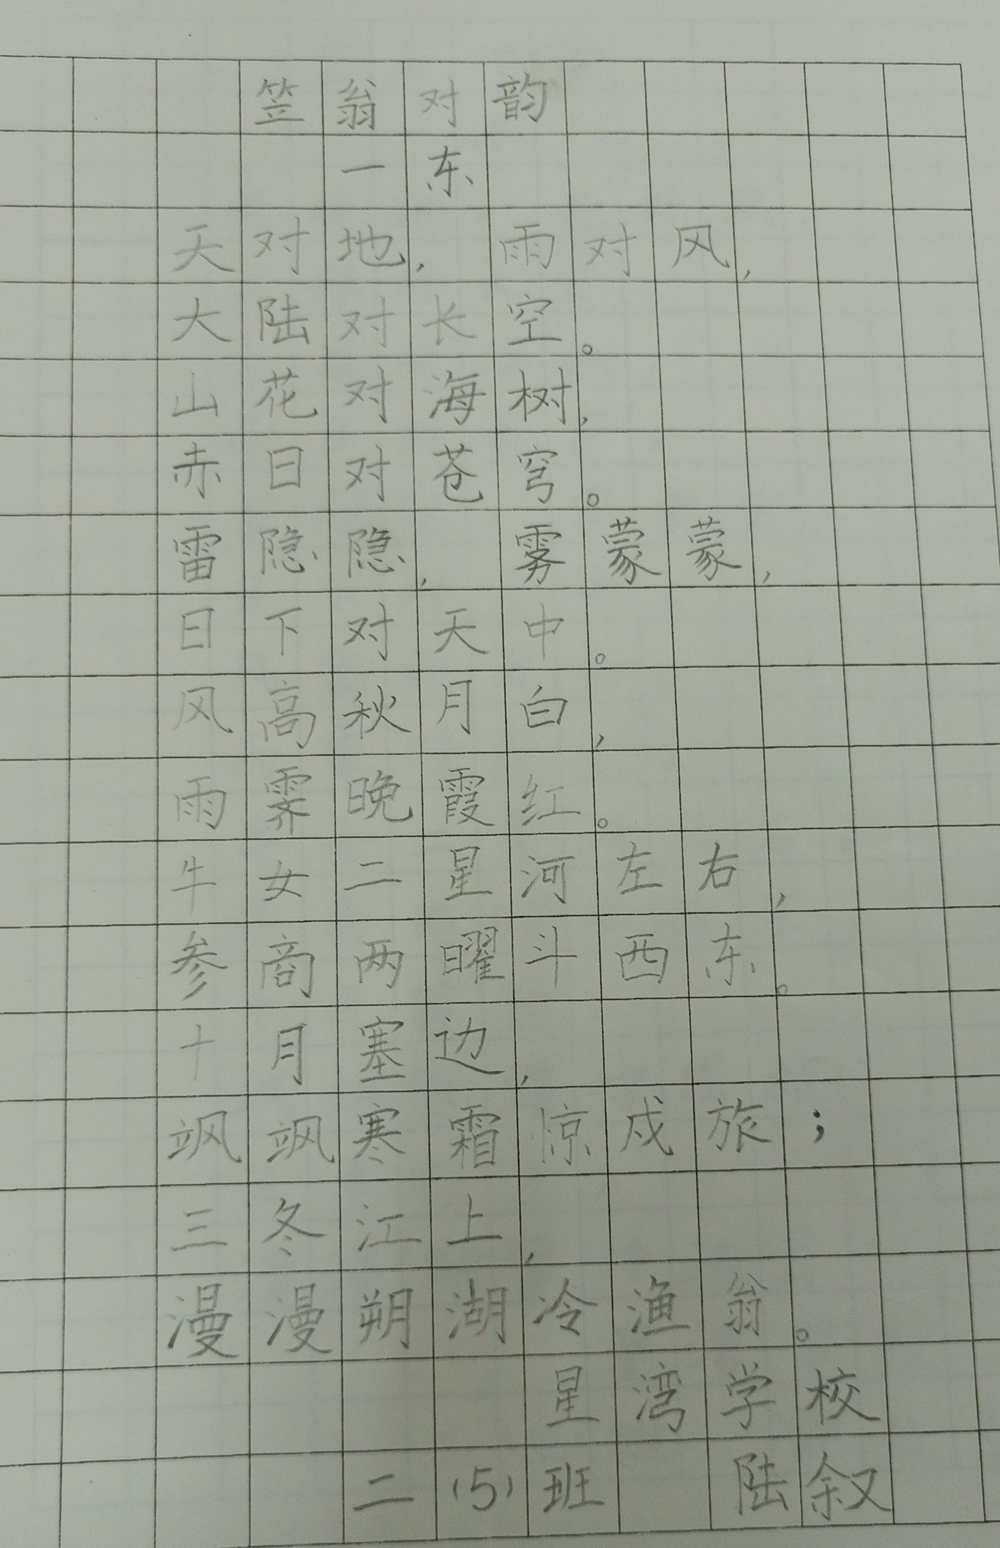 笠翁对韵
一东
天对地，雨对风，
大陆对长空。
山花对海树，
赤日对苍穹。
雷隐隐，雾蒙蒙，
日下对天中。
风高秋月白，
雨霁晚霞红。
牛女二星河左右，
参商两曜斗西东。
十月塞边，
飒飒寒霜惊戍旅；
三冬江上，
漫漫朔湖冷渔翁。
星湾学校
二（5）班 陆叙